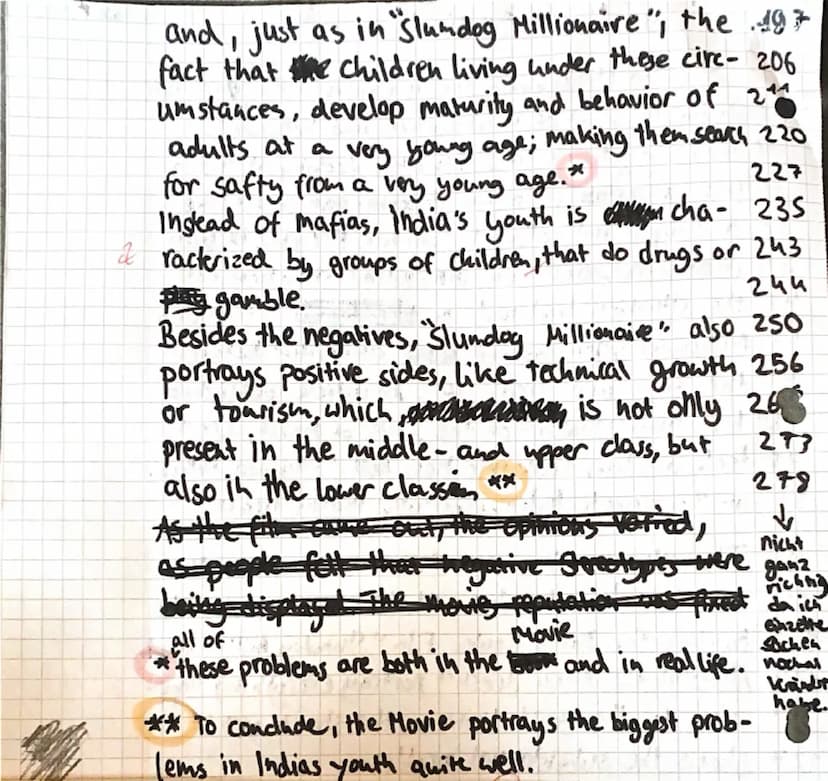 and, just as in "Slumdog Millionaire", the 197
fact that children living under these circ- 206
umstances, develop maturity and behavior of 211
adults at a very young age; making them search 220
for safty from a very young age.* 227
Instead of mafias, India's youth is cha- 235
racterized by groups of children, that do drugs or 243
gamble. 244
Besides the negatives, "Slumdog Millionaire" also 250
portrays positive sides, like technical growth 256
or tourism, which, is not only 26
present in the middle- and upper class, but 273
also in the lower class. ** 278
As the film came out, the opinions varied,
as people felt that negative stereotypes were
being displayed. The movies reputation was fixed
↓
nicht
ganz
richtig
da ich
einzelne
sachen
nochmal
verändert
habe.
all of Movie
*these problems are both in the and in real life.
** To conclude, the Movie portrays the biggest prob-
lems in Indias youth quite well.